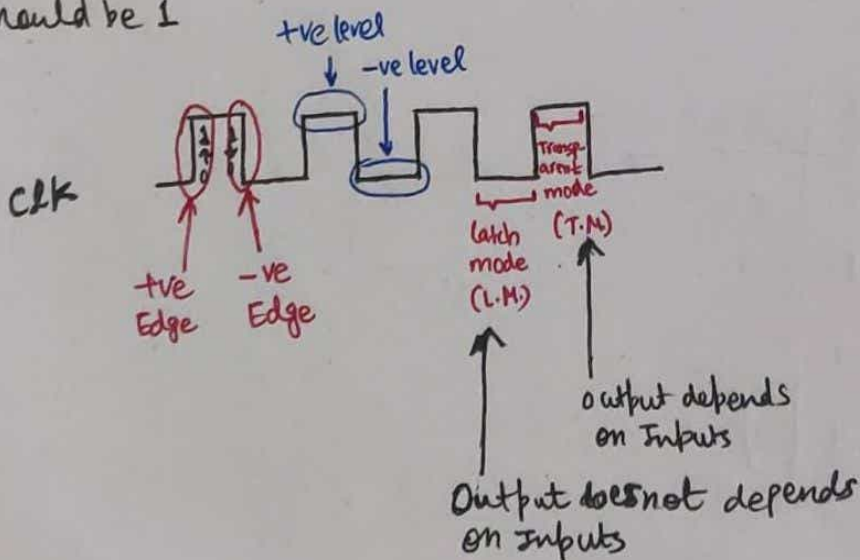 hould be 1
+ve level
-ve level
CLK
1
0
Transp-
arent
mode
(T.M.)
latch
mode
(L.M.)
+ve
Edge
-ve
Edge
output depends
on Inputs
Output does not depends
on Inputs